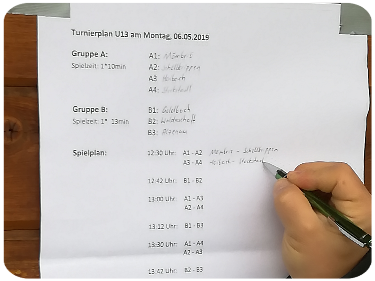 Turnierplan U13 am Montag, 06.05.2019
Gruppe A: A1:
Spielzeit: 1*10min A2: Schöllkrippen
A3
A4
Gruppe B: B1: Goldbach
Spielzeit: 1* 13min B2:
B3:
Spielplan: 12:30 Uhr: A1 - A2 - Schöllkrippen
A3 - A4
12:42 Uhr: B1 - B2
13:00 Uhr: A1 - A3
A2 - A4
13:12 Uhr: B1 - B3
13:30 Uhr: A1 - A4
A2 - A3
13:42 Uhr: B2 - B3